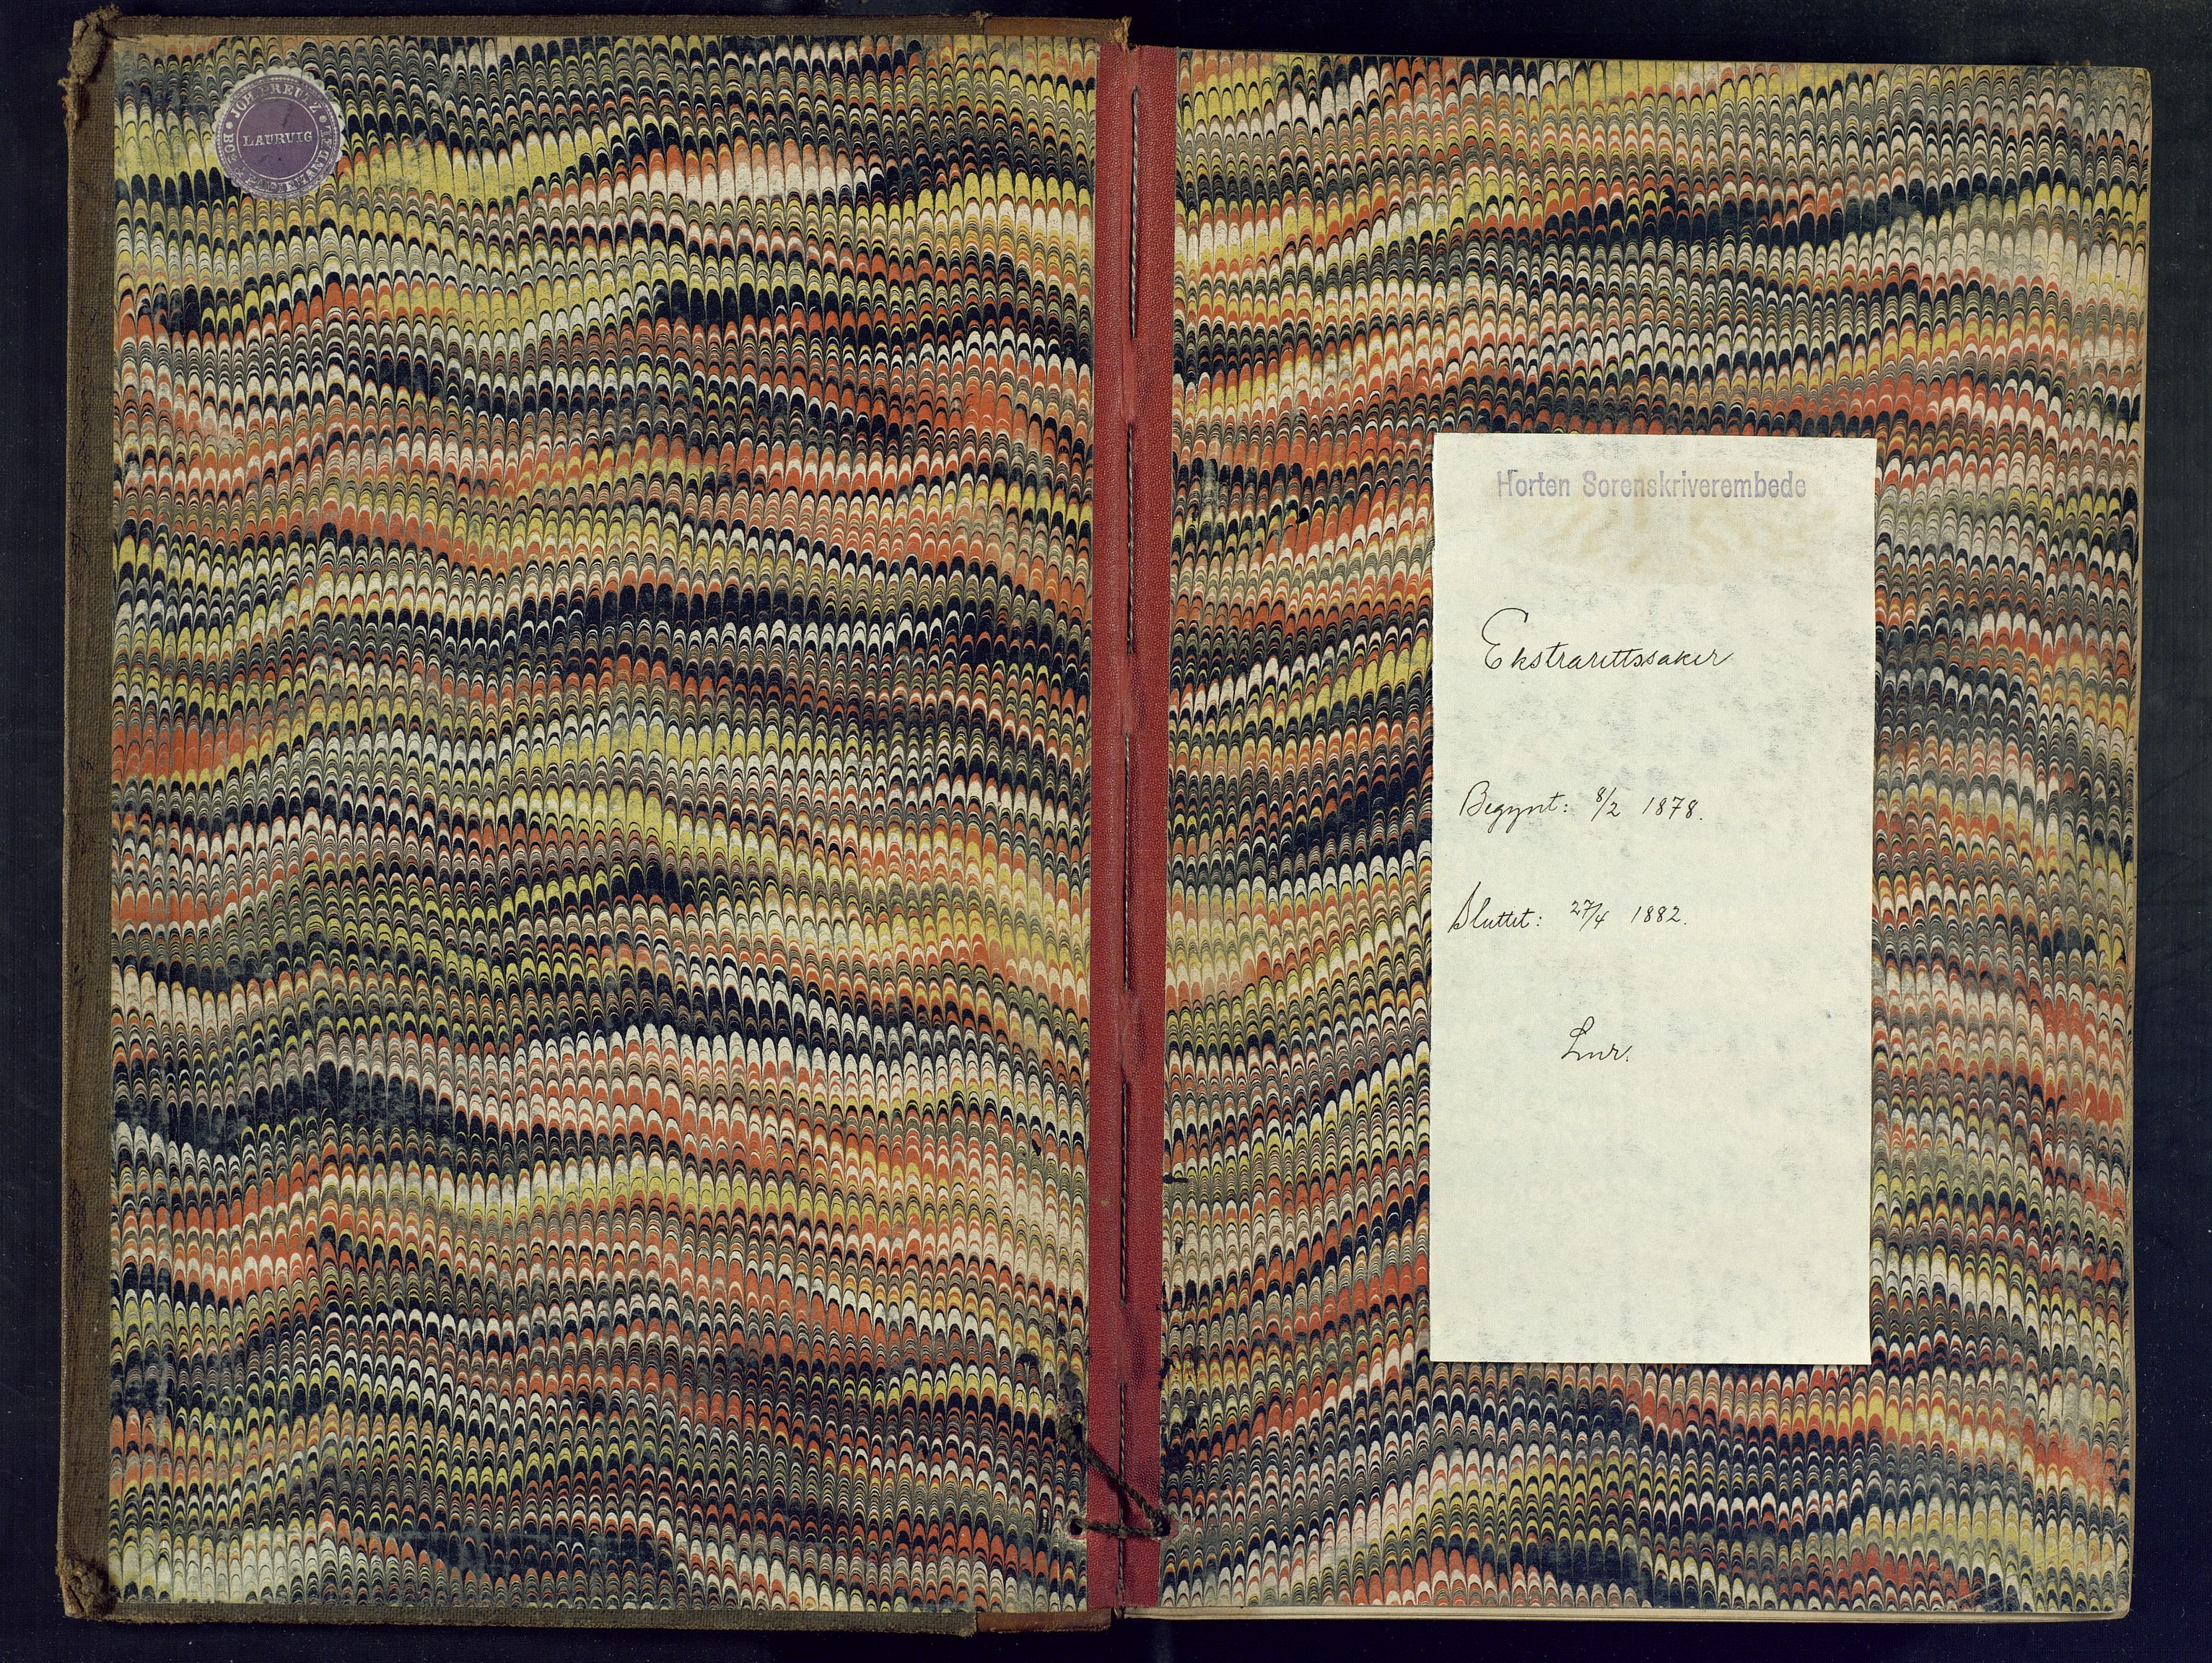 JOH. PREUTZ
LEDEL
BOG & PAPIRHANDEL
LAURVIG
Horten Sorenskriverembede
Ekstrarettssaker
Begynt: 8/2 1878.
Sluttet: 27/4 1882.
Lnr.